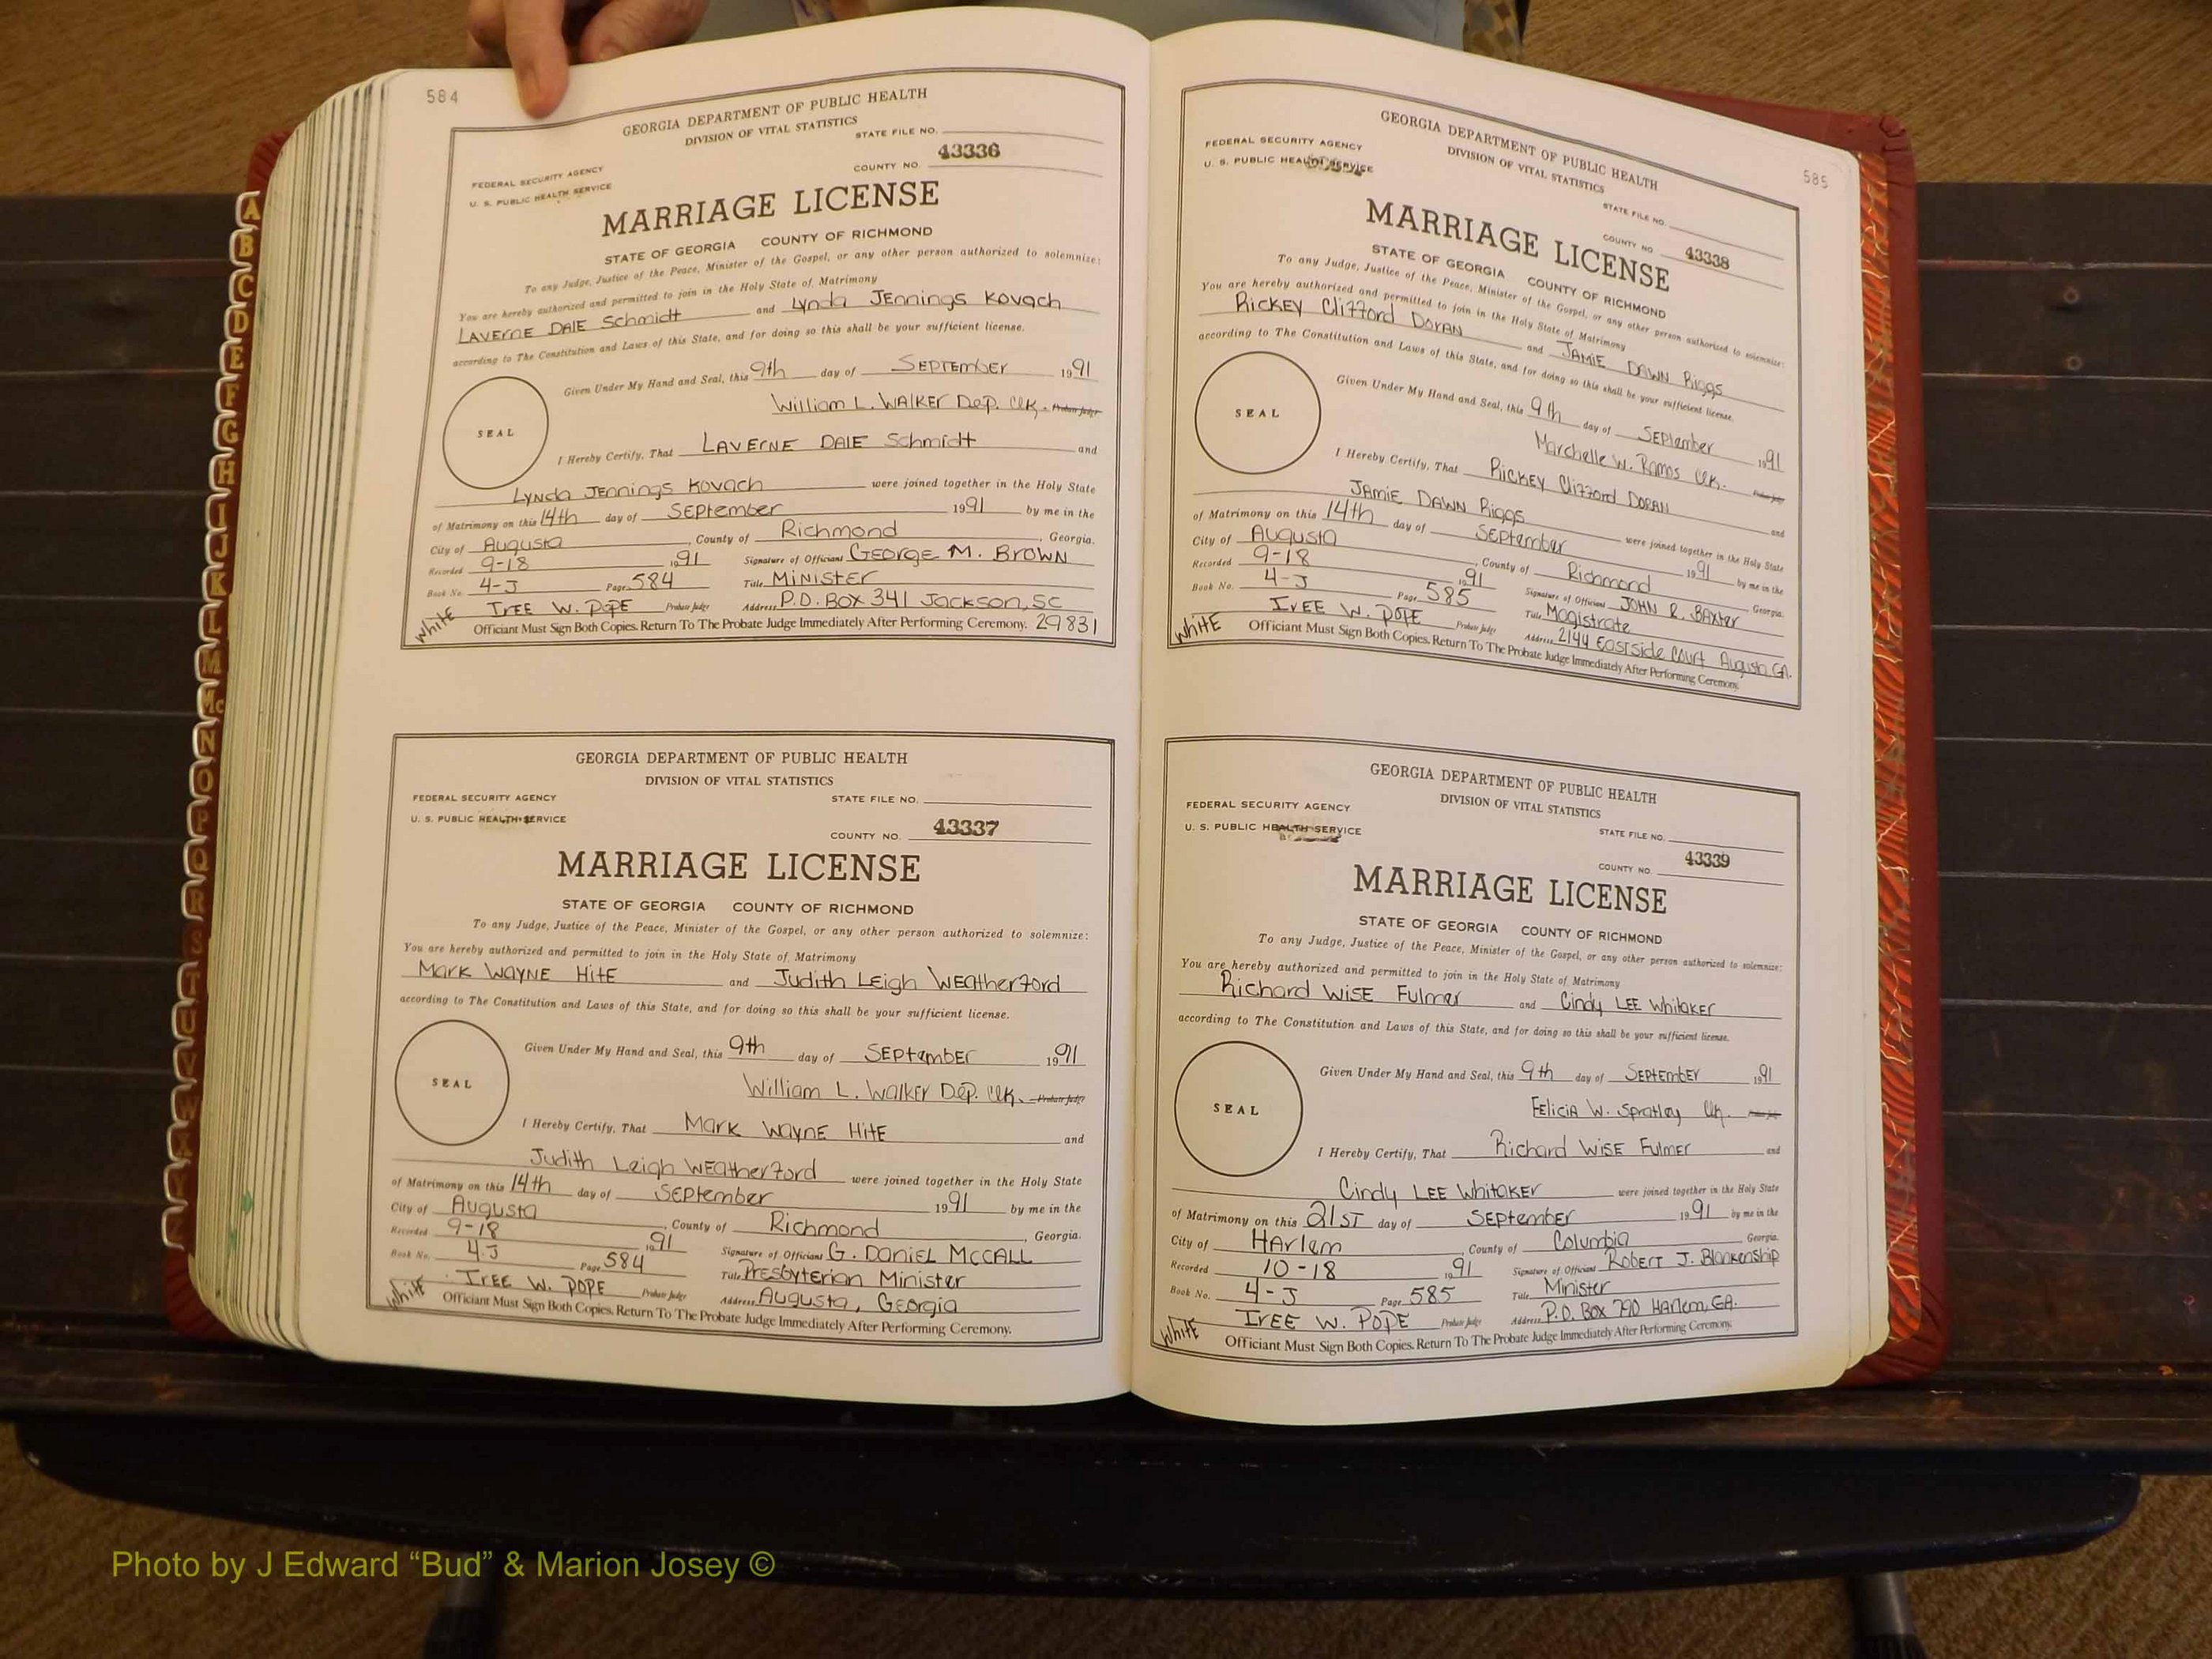 584
GEORGIA DEPARTMENT OF PUBLIC HEALTH
DIVISION OF VITAL STATISTICS
STATE FILE NO.
FEDERAL SECURITY AGENCY
U. S. PUBLIC HEALTH SERVICE
COUNTY NO. 43336
MARRIAGE LICENSE
STATE OF GEORGIA COUNTY OF RICHMOND
To any Judge, Justice of the Peace, Minister of the Gospel, or any other person authorized to solemnize:
You are hereby authorized and permitted to join in the Holy State of Matrimony
LAVERNE DALE Schmidt and Lynda JEnnings Kovach
according to The Constitution and Laws of this State, and for doing so this shall be your sufficient license.
Given Under My Hand and Seal, this 9th day of SEPTEmbEr 1991
William L. WALKER Dep. Clk. Probate Judge
SEAL
I Hereby Certify, That LAVERNE DALE Schmidt and
Lynda JEnnings Kovach were joined together in the Holy State
of Matrimony on this 14th day of SEPtember 1991 by me in the
City of Augusta, County of Richmond, Georgia.
Recorded 9-18 1991 Signature of Officiant GEORGE M. BROWN
Book No. 4-J Page 584 Title MINISTER
IrEE W. POPE Probate Judge Address P.O. BOX 341 Jackson, SC
White Officiant Must Sign Both Copies. Return To The Probate Judge Immediately After Performing Ceremony. 29831
GEORGIA DEPARTMENT OF PUBLIC HEALTH
DIVISION OF VITAL STATISTICS
FEDERAL SECURITY AGENCY STATE FILE NO.
U. S. PUBLIC HEALTH SERVICE
COUNTY NO. 43337
MARRIAGE LICENSE
STATE OF GEORGIA COUNTY OF RICHMOND
To any Judge, Justice of the Peace, Minister of the Gospel, or any other person authorized to solemnize:
You are hereby authorized and permitted to join in the Holy State of Matrimony
Mark WAYNE HitE and Judith Leigh WEatherford
according to The Constitution and Laws of this State, and for doing so this shall be your sufficient license.
Given Under My Hand and Seal, this 9th day of SEPtembEr 1991
William L. Walker Dep. Clk. Probate Judge
SEAL
I Hereby Certify, That Mark WaynE HitE and
Judith Leigh WEatherford were joined together in the Holy State
of Matrimony on this 14th day of SEPtember 1991 by me in the
City of Augusta, County of Richmond, Georgia.
Recorded 9-18 1991 Signature of Officiant G. DANIEL MCCALL
Book No. 4-J Page 584 Title Presbyterian Minister
IrEE W. POPE Probate Judge Address Augusta, Georgia
White Officiant Must Sign Both Copies. Return To The Probate Judge Immediately After Performing Ceremony.
585
GEORGIA DEPARTMENT OF PUBLIC HEALTH
DIVISION OF VITAL STATISTICS
FEDERAL SECURITY AGENCY
U. S. PUBLIC HEALTH SERVICE
STATE FILE NO.
COUNTY NO. 43338
MARRIAGE LICENSE
STATE OF GEORGIA COUNTY OF RICHMOND
To any Judge, Justice of the Peace, Minister of the Gospel, or any other person authorized to solemnize:
You are hereby authorized and permitted to join in the Holy State of Matrimony
Rickey Clifford DORAN and JAMIE DAWN Riggs
according to The Constitution and Laws of this State, and for doing so this shall be your sufficient license.
Given Under My Hand and Seal, this 9th day of SEPtember 1991
Marchelle W. Ramos Clk. Probate Judge
SEAL
I Hereby Certify, That Rickey Clifford DORAN and
JAMIE DAWN Riggs were joined together in the Holy State
of Matrimony on this 14th day of September 1991 by me in the
City of Augusta, County of Richmond Georgia.
Recorded 9-18 1991 Signature of Officiant JOHN R. BAxter
Book No. 4-J Page 585 Title Magistrate
IrEE W. POPE Probate Judge Address 2144 Eastside Court Augusta, GA.
WhitE Officiant Must Sign Both Copies. Return To The Probate Judge Immediately After Performing Ceremony.
GEORGIA DEPARTMENT OF PUBLIC HEALTH
DIVISION OF VITAL STATISTICS
FEDERAL SECURITY AGENCY
U. S. PUBLIC HEALTH SERVICE
STATE FILE NO.
COUNTY NO. 43339
MARRIAGE LICENSE
STATE OF GEORGIA COUNTY OF RICHMOND
To any Judge, Justice of the Peace, Minister of the Gospel, or any other person authorized to solemnize:
You are hereby authorized and permitted to join in the Holy State of Matrimony
Richard WISE Fulmer and Cindy LEE Whitaker
according to The Constitution and Laws of this State, and for doing so this shall be your sufficient license.
Given Under My Hand and Seal, this 9th day of SEPtembEr 1991
FElicia W. Spratley Clk. Probate Judge
SEAL
I Hereby Certify, That Richard WISE Fulmer and
Cindy LEE WhitakEr were joined together in the Holy State
of Matrimony on this 21st day of SEPtember 1991 by me in the
City of HArlem, County of Columbia Georgia.
Recorded 10-18 1991 Signature of Officiant Robert J. Blankenship
Book No. 4-J Page 585 Title Minister
IrEE W. POPE Probate Judge Address P.O. Box 790 Harlem, GA.
WhitE Officiant Must Sign Both Copies. Return To The Probate Judge Immediately After Performing Ceremony.
A
B
C
D
E
F
G
H
I
J
K
L
M
Mc
N
O
P
Q
R
S
T
U
V
W
X
Y
Z
Photo by J Edward “Bud” & Marion Josey ©